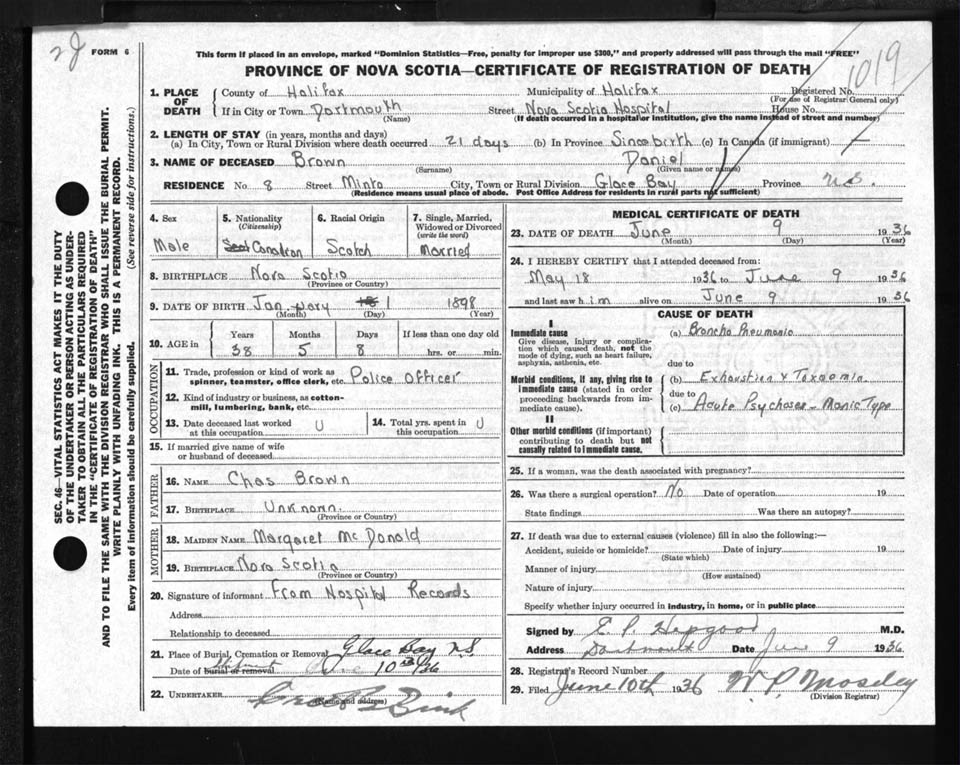 FORM 6
This form if placed in an envelope, marked "Dominion Statistics—Free, penalty for improper use $300," and properly addressed will pass through the mail "FREE"
1019
PROVINCE OF NOVA SCOTIA—CERTIFICATE OF REGISTRATION OF DEATH
SEC. 46—VITAL STATISTICS ACT MAKES IT THE DUTY
OF THE UNDERTAKER OR PERSON ACTING AS UNDER-
TAKER TO OBTAIN ALL THE PARTICULARS REQUIRED
IN THE "CERTIFICATE OF REGISTRATION OF DEATH"
AND TO FILE THE SAME WITH THE DIVISION REGISTRAR WHO SHALL ISSUE THE BURIAL PERMIT.
WRITE PLAINLY WITH UNFADING INK. THIS IS A PERMANENT RECORD.
Every item of information should be carefully supplied. (See reverse side for instructions.)
1. PLACE OF DEATH
County of Halifax Municipality of Halifax Registered No.
(For use of Registrar General only)
If in City or Town Dartmouth Street Nova Scotia Hospital House No.
(Name) (If death occurred in a hospital or institution, give the name instead of street and number)
2. LENGTH OF STAY (in years, months and days)
(a) In City, Town or Rural Division where death occurred 21 days (b) In Province Since birth (c) In Canada (if immigrant)
3. NAME OF DECEASED Brown Daniel
(Surname) (Given name or names)
RESIDENCE No 8 Street Minto City, Town or Rural Division Glace Bay Province N.S.
(Residence means usual place of abode. Post Office Address for residents in rural parts not sufficient)
4. Sex 5. Nationality 6. Racial Origin 7. Single, Married,
(Citizenship) Widowed or Divorced
(write the word)
Male Canadian Scotch Married
8. BIRTHPLACE Nova Scotia
(Province or Country)
9. DATE OF BIRTH January 1 1898
(Month) (Day) (Year)
10. AGE in Years Months Days If less than one day old
38 5 8 hrs. or min.
OCCUPATION
11. Trade, profession or kind of work as
spinner, teamster, office clerk, etc. Police Officer
12. Kind of industry or business, as cotton-
mill, lumbering, bank, etc.
13. Date deceased last worked U 14. Total yrs. spent in U
at this occupation this occupation
15. If married give name of wife
or husband of deceased
FATHER
16. NAME Chas Brown
17. BIRTHPLACE Unknown
(Province or Country)
MOTHER
18. MAIDEN NAME Margaret McDonald
19. BIRTHPLACE Nova Scotia
(Province or Country)
20. Signature of informant From Hospital Records
Address
Relationship to deceased
21. Place of Burial, Cremation or Removal Glace Bay N.S.
Date of burial or removal Shipment June 10th/36
22. UNDERTAKER
(Name and address)
MEDICAL CERTIFICATE OF DEATH
23. DATE OF DEATH June 9 1936
(Month) (Day) (Year)
24. I HEREBY CERTIFY that I attended deceased from:
May 18 1936 to June 9 1936
and last saw him alive on June 9 1936
CAUSE OF DEATH
I
Immediate cause (a) Broncho Pneumonia
Give disease, injury or complica-
tion which caused death, not the
mode of dying, such as heart failure,
asphyxia, asthenia, etc.
due to
Morbid conditions, if any, giving rise to (b) Exhaustion & Toxaemia
immediate cause (stated in order due to
proceeding backwards from im- (c) Acute Psychoses - Manic Type
mediate cause).
II
Other morbid conditions (if important)
contributing to death but not
causally related to immediate cause.
25. If a woman, was the death associated with pregnancy?
26. Was there a surgical operation? No Date of operation 19
State findings Was there an autopsy?
27. If death was due to external causes (violence) fill in also the following:—
Accident, suicide or homicide? Date of injury 19
(State which)
Manner of injury
(How sustained)
Nature of injury
Specify whether injury occurred in industry, in home, or in public place
Signed by E. P. Hapgood M.D.
Address Dartmouth Date June 9 1936
28. Registrar's Record Number
29. Filed June 10th 1936 W. P. Moseley
(Division Registrar)